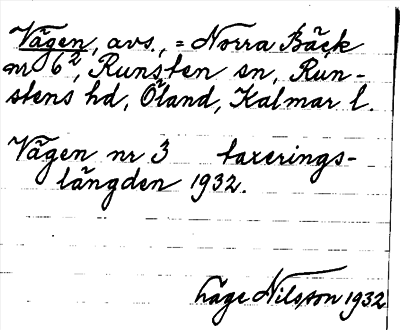 Vägen, avs., = Norra Bäck
nr 6², Runsten sn, Run-
stens hd, Öland, Kalmar l.
Vägen nr 3 taxerings-
längden 1932.
Hage Nilsson 1932